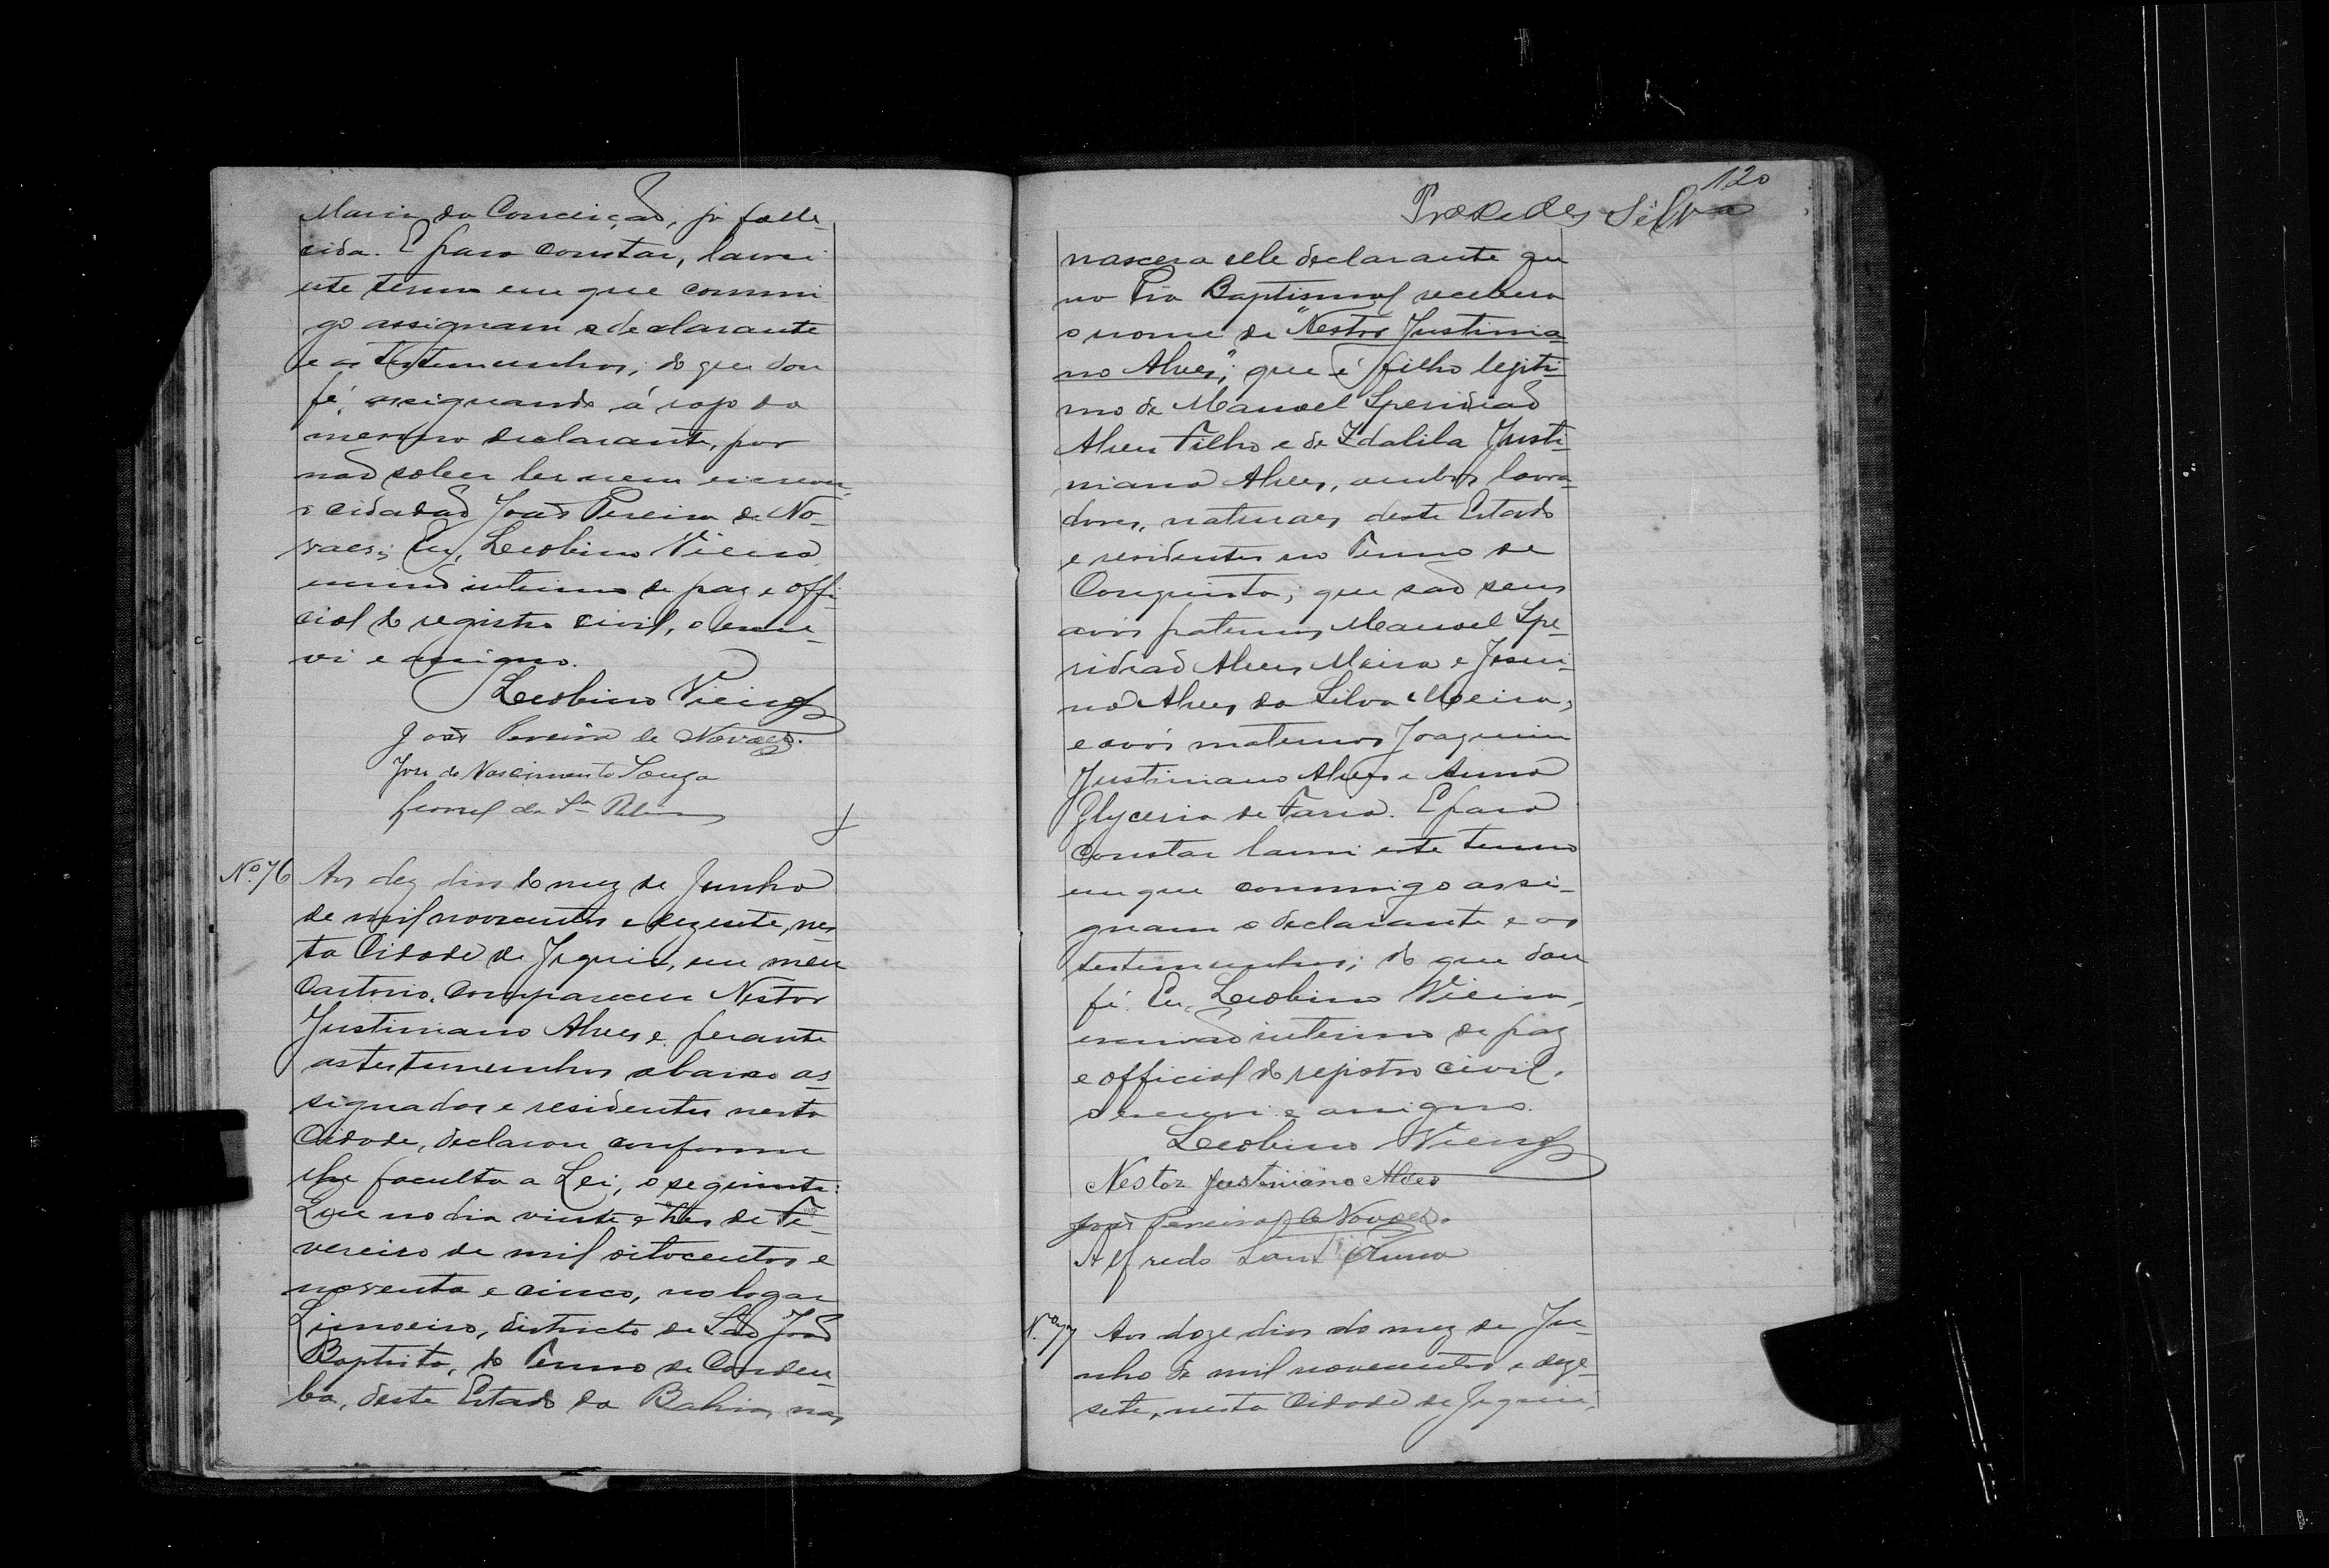 Maria da Conceição, já falle-
cida. E para constar, lavrei
este termo em que commi
go assignam o declarante
e as testemunhas; do que dou
fé, assignando á rogo do
mesmo declarante, por
não saber ler nem escrever,
o cidadão João Pereira de No-
vaes; Eu, Lecobino Vieira
escrivão interino de paz e offi-
cial do registro civil, o escre-
vi e assigno.
Lecobino Vieira
João Pereira de Novaes.
José do Nascimento Souza
Leonel da Sª
Nº 76
Aos dez dias do mez de Junho
de mil novecentos e dezesete, nes
ta Cidade de Jequié, em meu
Cartorio, compareceu Nestor
Justiniano Alves e perante
as testemunhas abaixo as-
signadas e residentes nesta
Cidade, declarou conforme
lhe faculta a Lei, o seguinte:
Que no dia vinte e tres de Fe-
vereiro de mil oitocentos e
noventa e cinco, no logar
Limoeiro, districto de São João
Baptista, do Termo de Condeu-
ba, deste Estado da Bahia, nas
120
Praxedes Silva
nascera elle declarante que
na Pia Baptismal recebera
o nome de "Nestor Justinia-
no Alves"; que é filho legiti-
mo de Manoel Speridião
Alves Filho e de Idalila Justi-
niana Alves, ambos lavra-
dores, naturaes deste Estado
e residentes no Termo de
Conquista; que são seus
avós paternos Manoel Spe-
ridião Alves Meira e Josui-
na Alves da Silva Meira,
e avós maternos Joaquim
Justiniano Alves e Anna
Glyceria de Faria. E para
constar lavrei este termo
em que commigo assi-
gnam o declarante e as
testemunhas; do que dou
fé. Eu, Lecobino Vieira,
escrivão interino de paz
e official do registro civil,
o escrevi e assigno.
Lecobino Vieira
Nestor Justiniano Alves
João Pereira de Novaes.
Alfredo Sant'Anna
Nº 77
Aos doze dias do mez de Ju-
nho de mil novecentos e deze-
sete, nesta Cidade de Jequié,